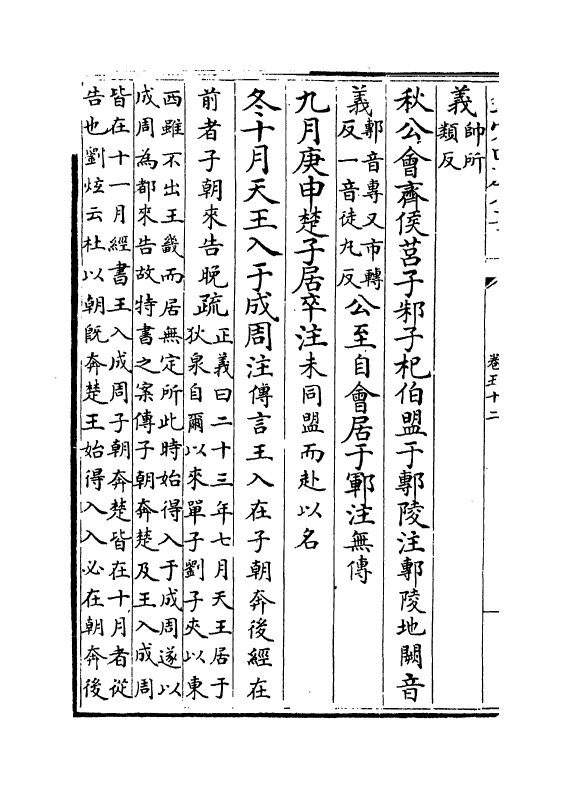 卷五十二
義帥所
類反
秋公會齊侯莒子邾子杞伯盟于鄟陵注鄟陵地闕音
義鄟音專又市轉
反一音徒九反公至自會居于鄆注無傳
九月庚申楚子居卒注未同盟而赴以名
冬十月天王入于成周注傳言王入在子朝奔後經在
前者子朝來告晚疏正義曰二十三年七月天王居于
狄泉自爾以來單子劉子夾以東
西雖不出王畿而居無定所此時始得入于成周遂以
成周為都來告故特書之案傳子朝奔楚及王入成周
皆在十一月經書王入成周子朝奔楚皆在十月者從
告也劉炫云杜以朝既奔楚王始得入入必在朝奔後